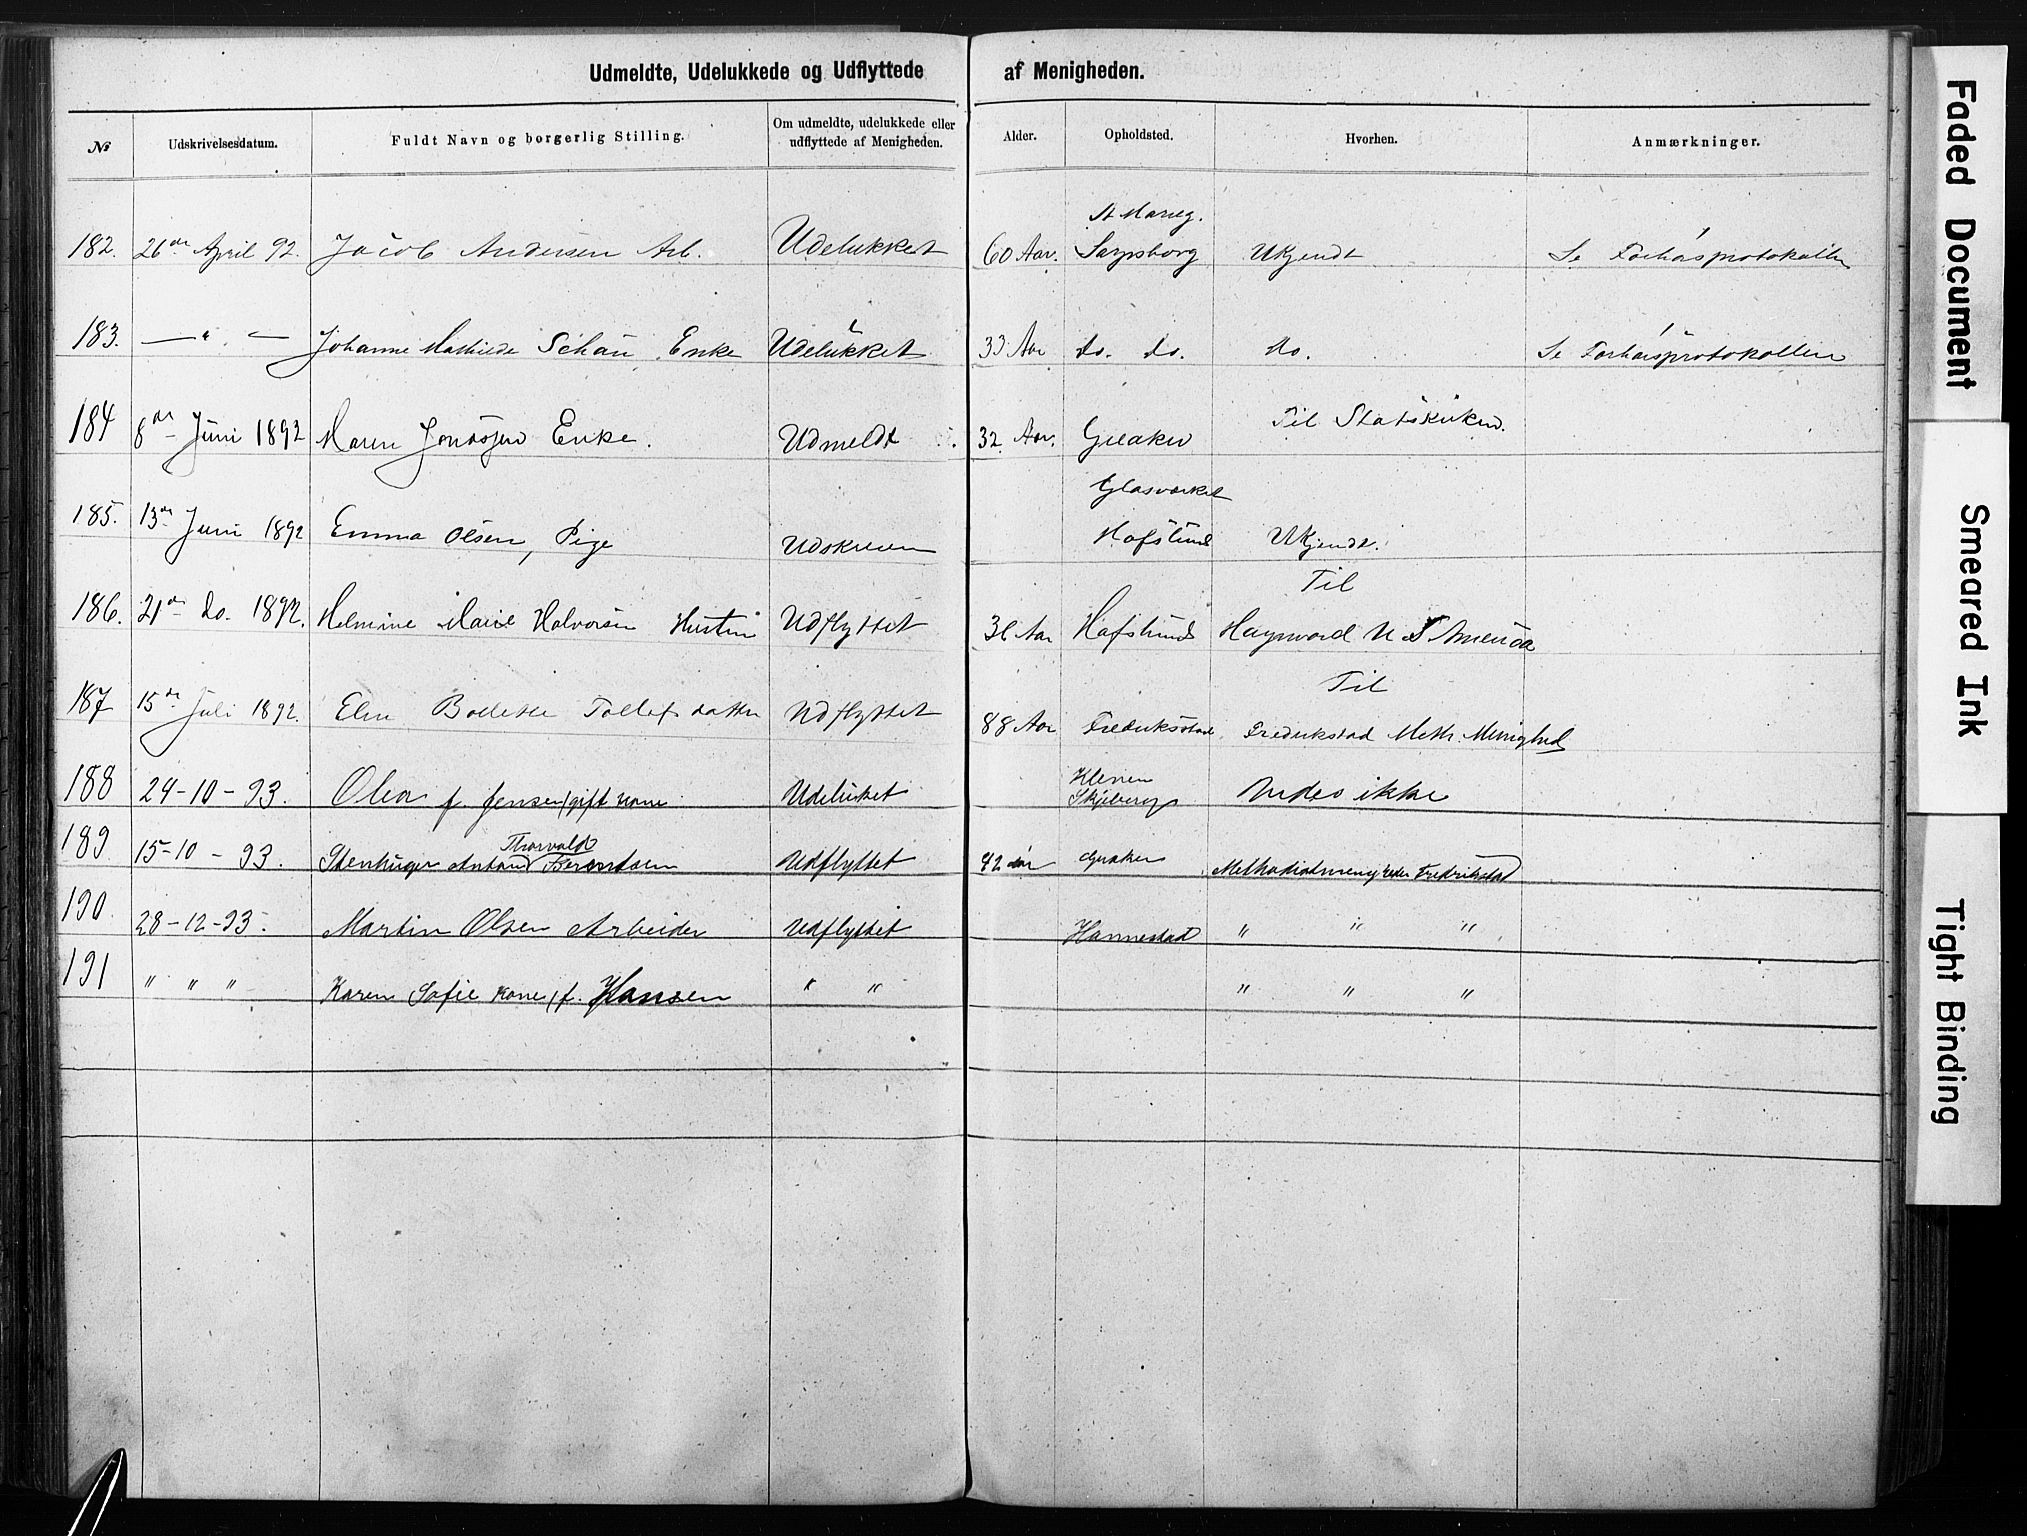 Udmeldte, Udelukkede og Udflyttede af Menigheden.
№ Udskrivelsesdatum. Fuldt Navn og borgerlig Stilling. Om udmeldte, udelukkede eller udflyttede af Menigheden. Alder. Opholdsted. Hvorhen. Anmærkninger.
St Marieg.
182. 26de April 92. Jacob Andersen Arb. Udelukket 60 Aar. Sarpsborg Ukjendt Se Forhørsprotokollen
183. — " — Johanne Mathilde Schau, Enke Udelukket 33 Aar do. do. do. Se Forhørsprotokollen
184 8de Juni 1892 Maren Jonassen Enke. Udmeldt 32 Aar. Greaker Til Statskirken.
Glasværket
185. 13de Juni 1892 Emma Olsen, Pige Udskreven Hafslund Ukjendt.
Til
186. 21de do. 1892. Helmine Marie Halvorsen Hustru Udflyttet 36 Aar Hafslund Hayward N S America
Til
187 15de Juli 1892. Elen Bolette Tollefsdatter Udflyttet 88 Aar Frederiksstad Frederikstad Meth. Menighed
Klenen
188 24-10-93. Olea f. Jensen/gift kone Udelukket Skjeberg Vides ikke
Thorvald
189 15-10-93. Stenhuger Antand Berentsen Udflyttet 42 aar Greaker Methodistmenigheden Fredrikstad
190. 28-12-93. Martin Olsen Arbeider Udflyttet Hannestad " " "
191 " " " Karen Sofie kone/f. Hansen " " " " "
Faded Document
Smeared Ink
Tight Binding